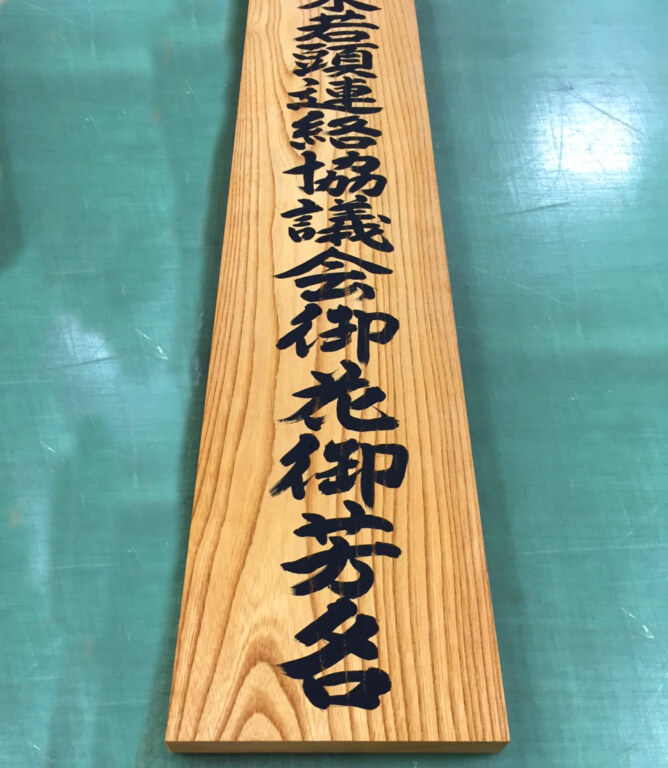 若頭連絡協議会御花御芳名